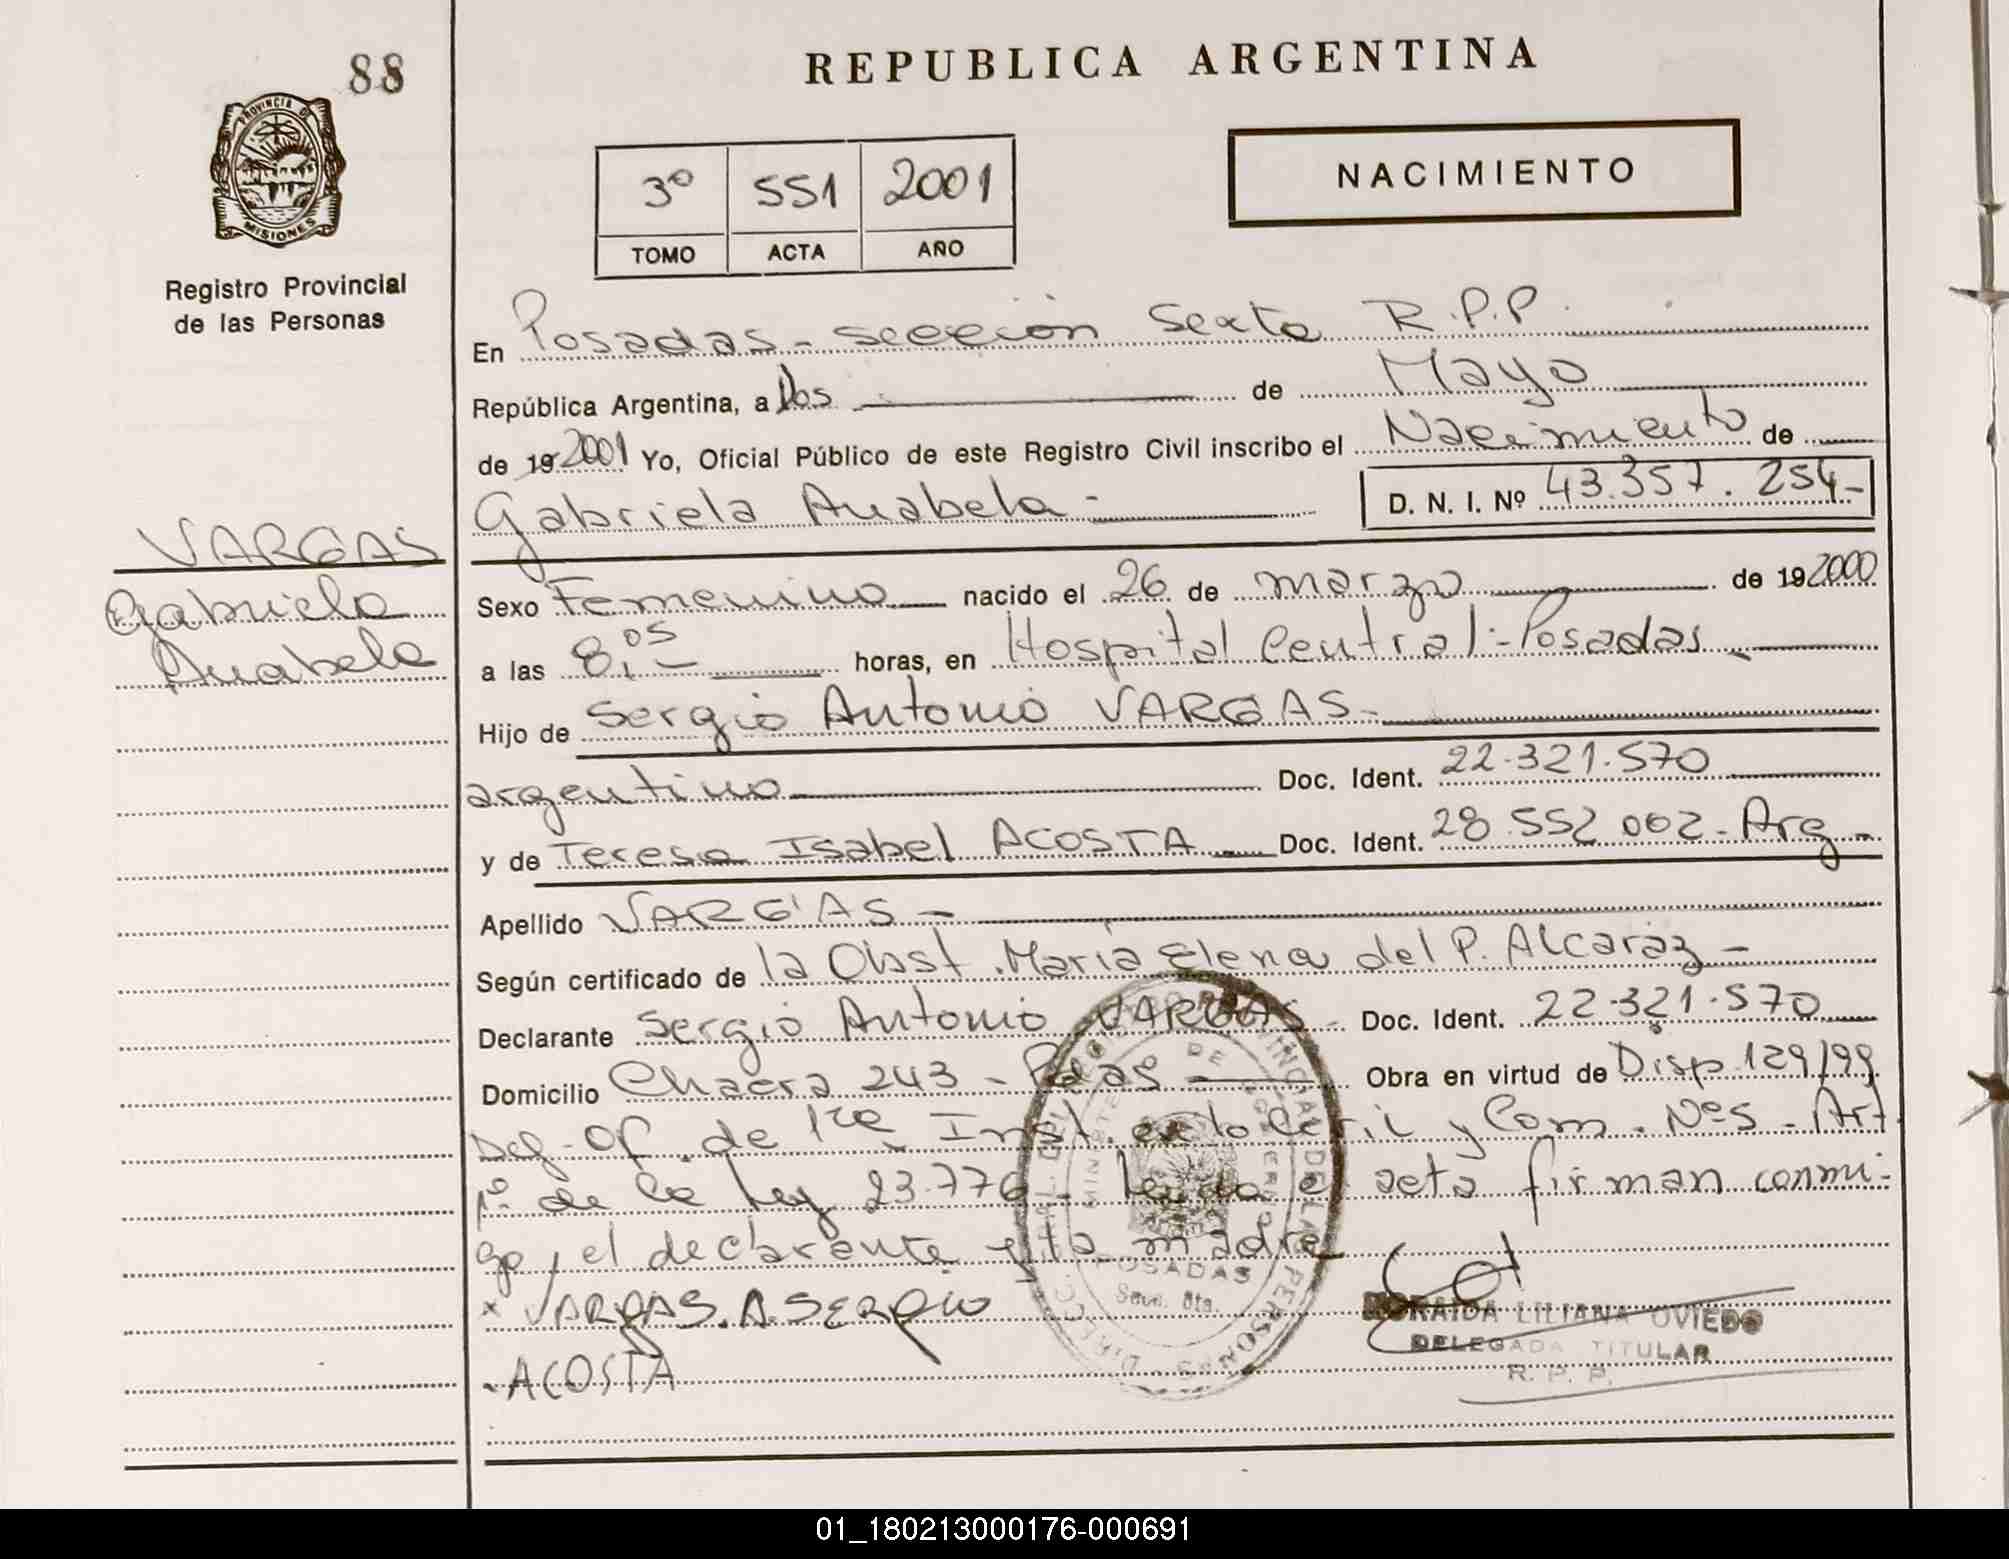 88
REPUBLICA ARGENTINA
PROVINCIA DE
MISIONES
Registro Provincial
de las Personas
3º 551 2001
TOMO ACTA AÑO
NACIMIENTO
En Posadas - sección Sexta R.P.P.
República Argentina, a Dos de Mayo
de 19 2001 Yo, Oficial Público de este Registro Civil inscribo el Nacimiento de
Gabriela Anabela - D. N. I. Nº 43.357.254-
VARGAS
Gabriela
Anabela
Sexo Femenino nacido el 26 de marzo de 19 2000
a las 8,05 horas, en Hospital Central - Posadas
Hijo de Sergio Antonio VARGAS -
argentino Doc. Ident. 22.321.570
y de Teresa Isabel ACOSTA Doc. Ident. 28.552.002 - Arg -
Apellido VARGAS -
Según certificado de la Obst. María Elena del P. Alcaraz -
Declarante Sergio Antonio VARGAS - Doc. Ident. 22.321.570
Domicilio Chacra 243 - Pdas - Obra en virtud de Disp 129/99
Def. Of. de 1ra Inst. en lo Civil y Com. Nº 5 - Art
1º de la ley 23.776 - leída el acta firman conmi-
go, el declarante y la madre
x VARGAS. A. SERGIO
- ACOSTA
POSADAS
LILIANA OVIEDO
DELEGADA TITULAR
R. P. P.
01_180213000176-000691